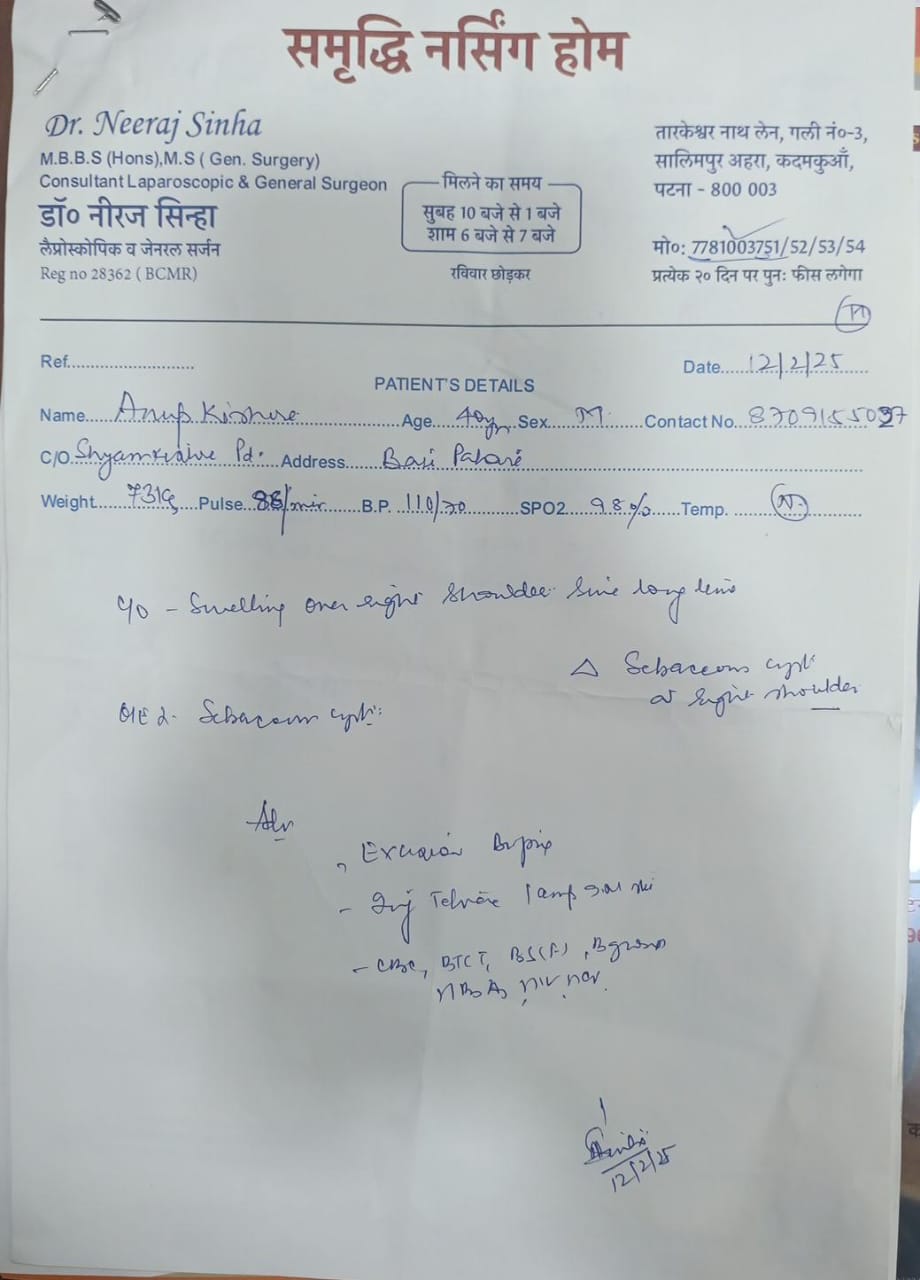 समृद्धि नर्सिंग होम
Dr. Neeraj Sinha
M.B.B.S (Hons),M.S ( Gen. Surgery)
Consultant Laparoscopic & General Surgeon
डॉ० नीरज सिन्हा
लैप्रोस्कोपिक व जेनरल सर्जन
Reg no 28362 ( BCMR)
मिलने का समय
सुबह 10 बजे से 1 बजे
शाम 6 बजे से 7 बजे
रविवार छोड़कर
तारकेश्वर नाथ लेन, गली नं०-3,
सालिमपुर अहरा, कदमकुआँ,
पटना - 800 003
मो०: 7781003751/52/53/54
प्रत्येक २० दिन पर पुनः फीस लगेगा
Ref............................ Date.....12/2/25......
PATIENT'S DETAILS
Name.....Anup Kishore.....Age....40yr Sex....M.....Contact No. 
C/O Shyam Pd. Address......
Weight....73Kg....Pulse 88/min.....B.P. 110/70.........SPO2...98%.....Temp. (N)
C/O - Swelling over right shoulder since long time
△ Sebaceous cyst
right shoulder
Sebaceous cyst
Adv
Excision Biopsy
- Inj 1 amp
- CBC, BTCT, BS(F),
12/2/25